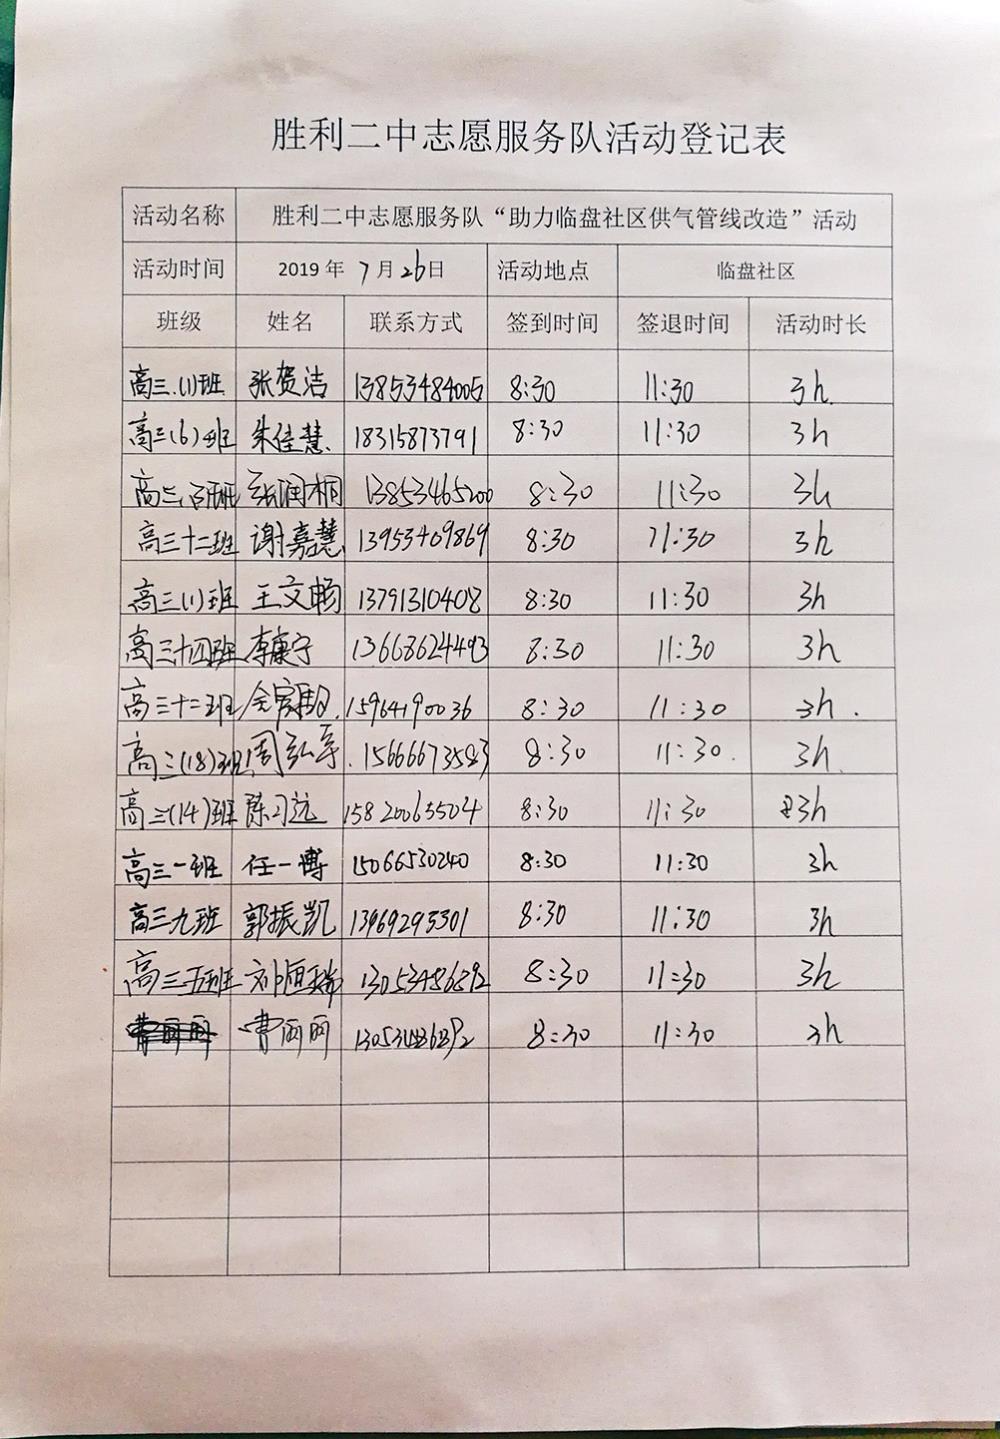 胜利二中志愿服务队活动登记表
活动名称 胜利二中志愿服务队“助力临盘社区供气管线改造”活动
活动时间 2019 年 7 月 26 日 活动地点 临盘社区
班级 姓名 联系方式 签到时间 签退时间 活动时长
高三.(1)班 张贺洁 13853484005 8:30 11:30 3h.
高三(6)班 朱佳慧. 18315873791 8:30 11:30 3h
高三 张润桐 13853465200 8:30 11:30 3h
高三十二班 谢嘉慧 13953409869 8:30 11:30 3h
高三(1)班 王文畅 13791310408 8:30 11:30 3h
高三十四班 李康宁 13668624493 8:30 11:30 3h
高三十二班 15964190036 8:30 11:30 3h.
高三(18)班 周弘 15666673583 8:30 11:30. 3h.
高三(14)班 陈习远 15820065504 8:30 11:30 3h
高三一班 任一博 15066530240 8:30 11:30 3h
高三九班 郭振凯 13969293301 8:30 11:30 3h
高三五班 刘恒瑞 13053486892 8:30 11:30 3h
曹丽丽 8:30 11:30 3h